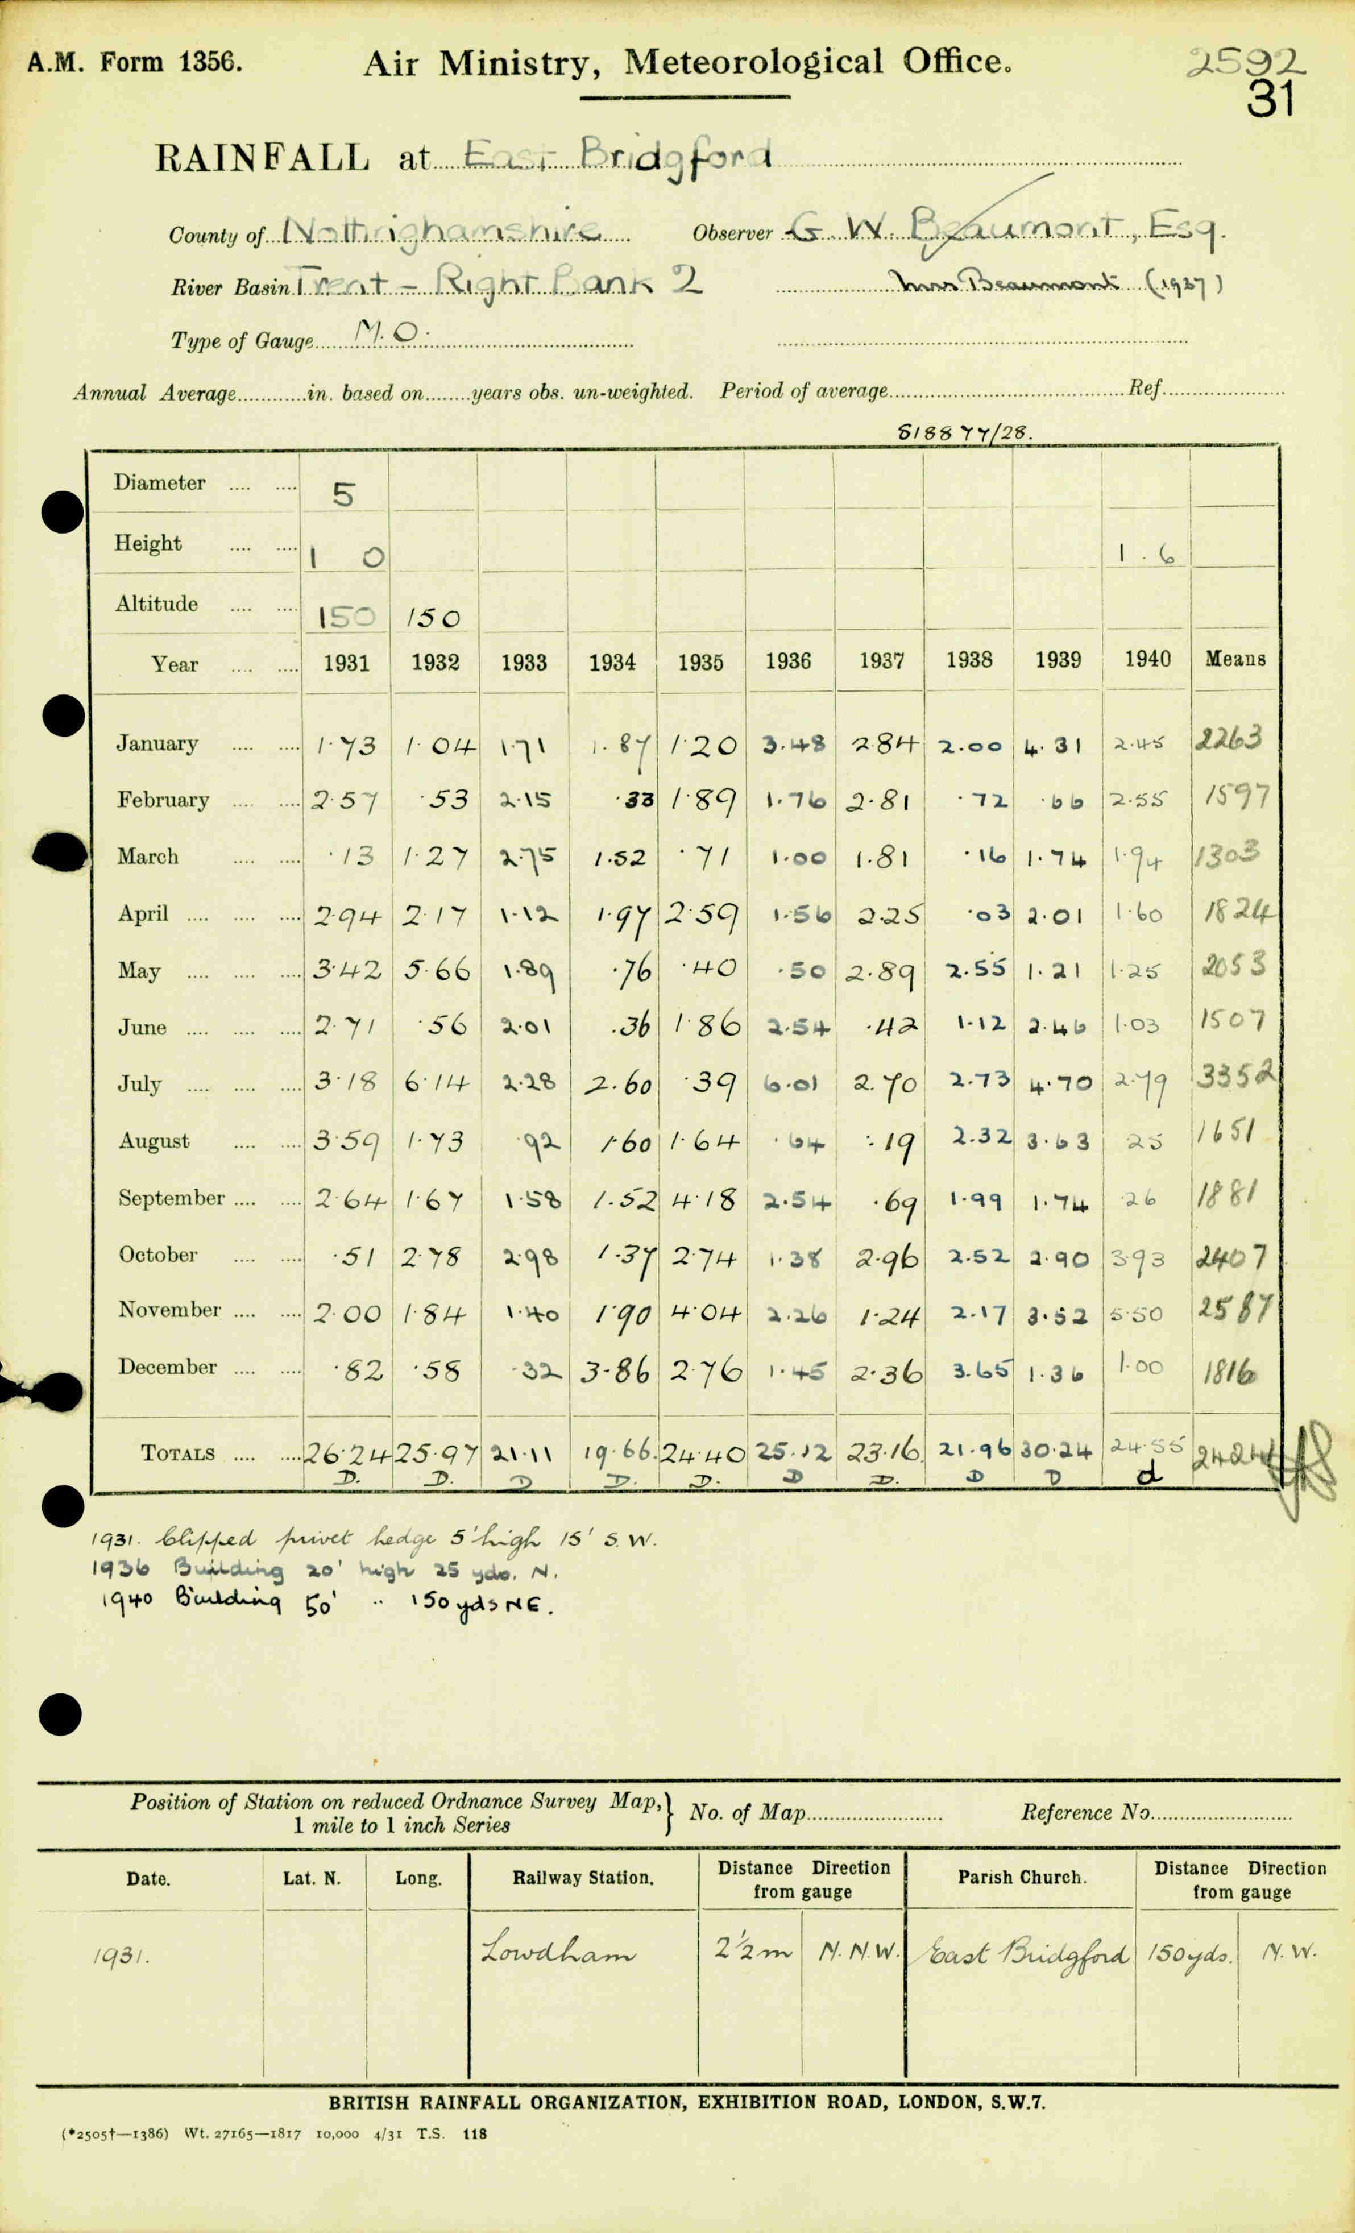 A.M. Form 1356.
Air Ministry, Meteorological Office.
2592
31
RAINFALL at East Bridgford
County of Nottinghamshire Observer G. W. Beaumont, Esq.
River Basin Trent - Right Bank 2 Mrs Beaumont (1937)
Type of Gauge M.O.
Annual Average in. based on years obs. un-weighted. Period of average Ref.
S18877/28.
Diameter 5
Height 1 0 1.6
Altitude 150 150
Year 1931 1932 1933 1934 1935 1936 1937 1938 1939 1940 Means
January 1.73 1.04 1.71 1.87 1.20 3.48 2.84 2.00 4.31 2.45 2263
February 2.57 .53 2.15 .33 1.89 1.76 2.81 .72 .66 2.55 1597
March .13 1.27 2.75 1.52 .71 1.00 1.81 .16 1.74 1.94 1303
April 2.94 2.17 1.12 1.97 2.59 1.56 2.25 .03 2.01 1.60 1824
May 3.42 5.66 1.89 .76 .40 .50 2.89 2.55 1.21 1.25 2053
June 2.71 .56 2.01 .36 1.86 2.54 .42 1.12 2.46 1.03 1507
July 3.18 6.14 2.28 2.60 .39 6.01 2.70 2.73 4.70 2.79 3352
August 3.59 1.73 .92 1.60 1.64 .64 .19 2.32 3.63 25 1651
September 2.64 1.67 1.58 1.52 4.18 2.54 .69 1.99 1.74 26 1881
October .51 2.78 2.98 1.37 2.74 1.38 2.96 2.52 2.90 3.93 2407
November 2.00 1.84 1.40 1.90 4.04 2.26 1.24 2.17 3.52 5.50 2587
December .82 .58 .32 3.86 2.76 1.45 2.36 3.65 1.36 1.00 1816
TOTALS 26.24 25.97 21.11 19.66 24.40 25.12 23.16 21.96 30.24 24.55
D. D. D D. D. D D. D D d
1931. Clipped privet hedge 5' high 15' S.W.
1936 Building 20' high 25 yds. N.
1940 Building 50' " 150 yds NE.
Position of Station on reduced Ordnance Survey Map, } No. of Map Reference No.
1 mile to 1 inch Series
Date. Lat. N. Long. Railway Station. Distance Direction from gauge Parish Church. Distance Direction from gauge
1931. Lowdham 2½m N.N.W. East Bridgford 150 yds. N.W.
BRITISH RAINFALL ORGANIZATION, EXHIBITION ROAD, LONDON, S.W.7.
(*2505†—1386) Wt. 27165—1817 10,000 4/31 T.S. 118